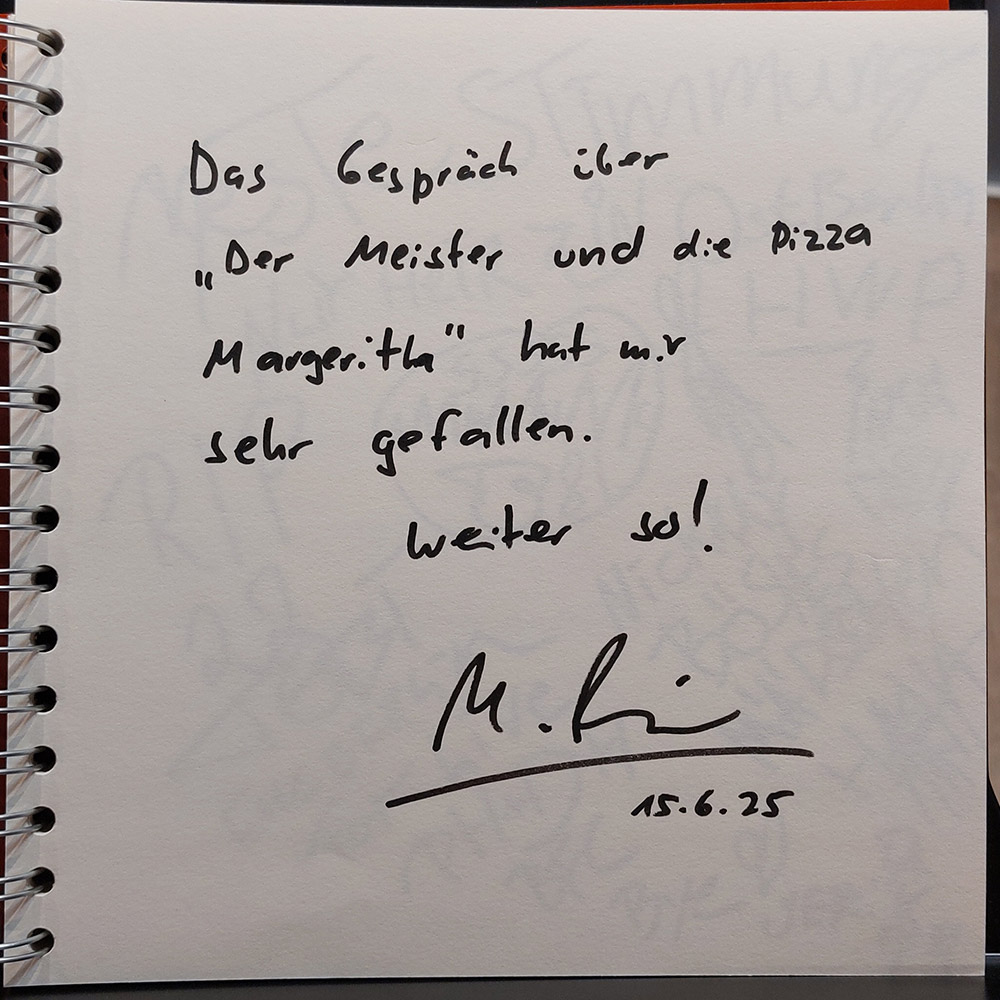 Das Gespräch über
„Der Meister und die Pizza
Margeritha" hat mir
sehr gefallen.
Weiter so!
M.
15.6.25